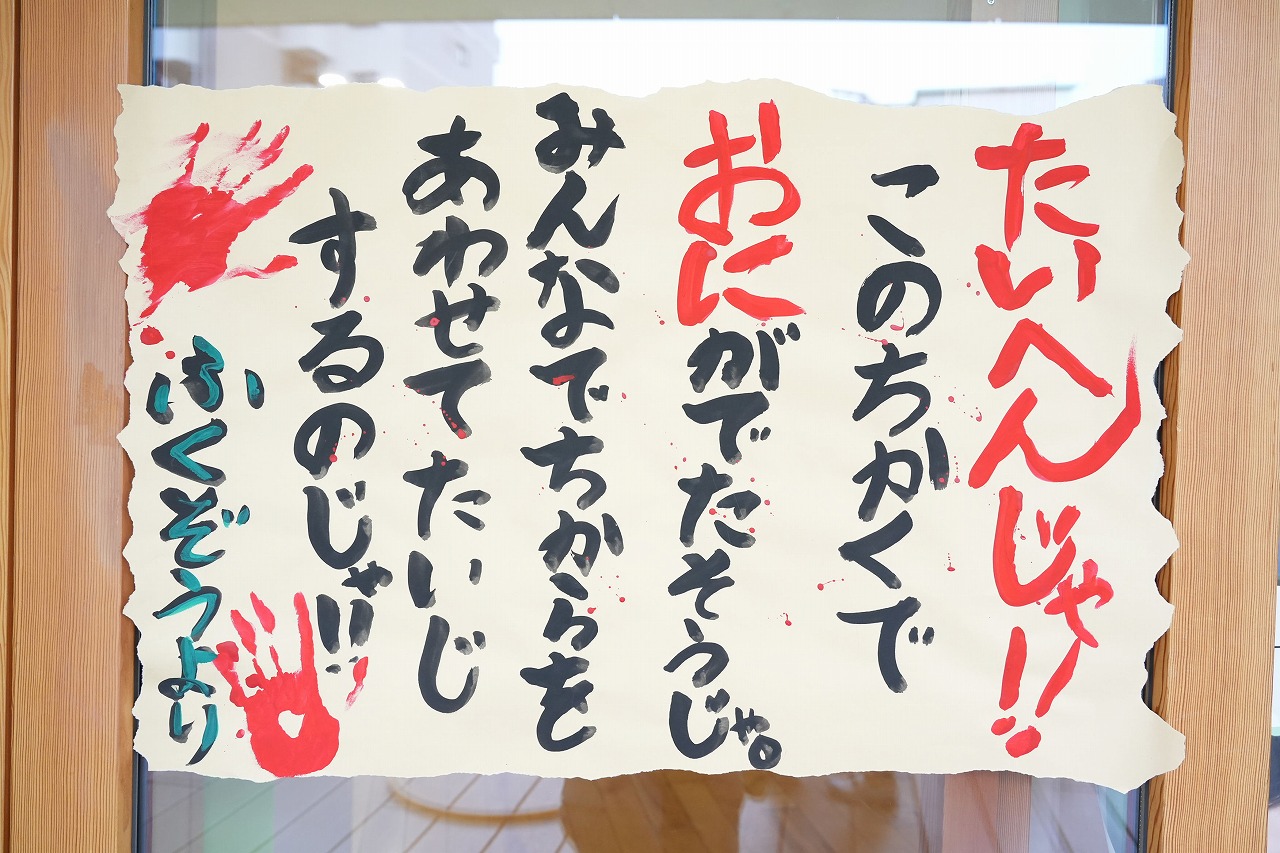 たいへんじゃ!!
このちかくで
おにがでたそうじゃ。
みんなでちからを
あわせてたいじ
するのじゃ!!
ふくぞうより